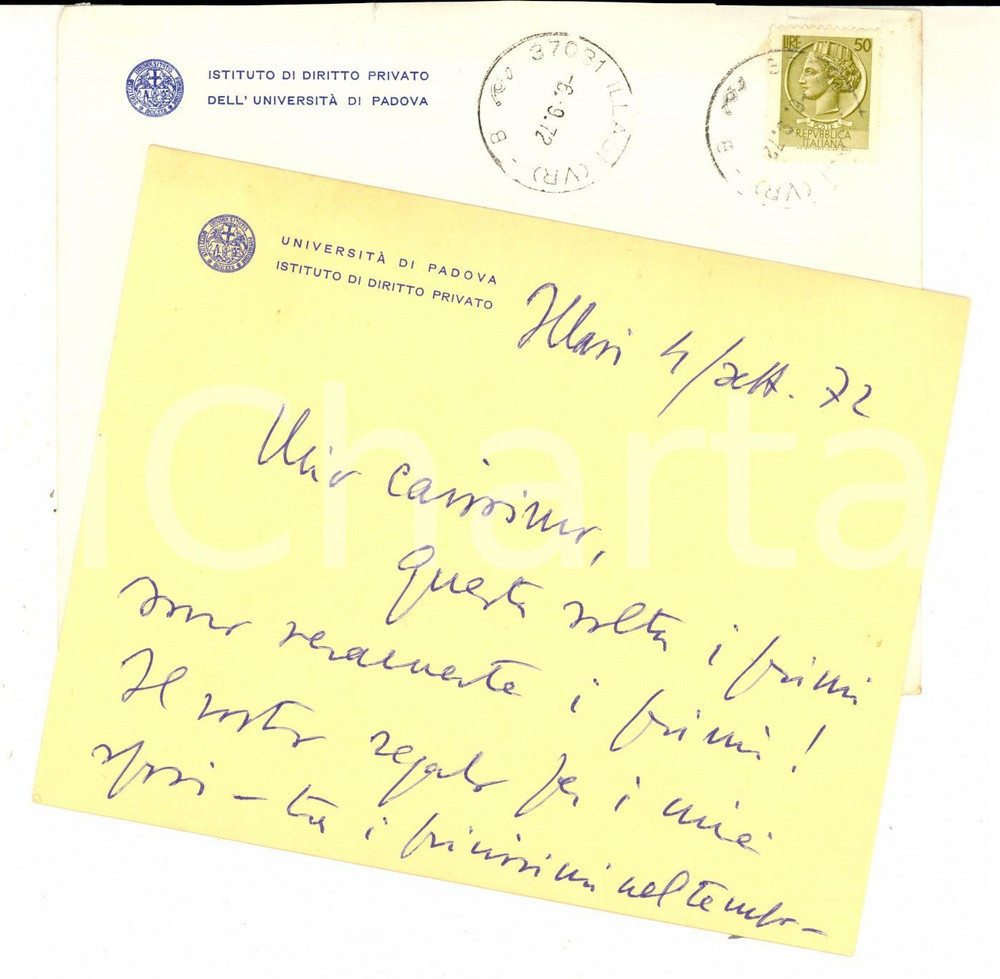 ISTITUTO DI DIRITTO PRIVATO
DELL' UNIVERSITÀ DI PADOVA
37031 ILLASI (VR) - B
-6.-9.72
LIRE 50
POSTE
REPVBBLICA
ITALIANA
UNIVERSITÀ DI PADOVA
ISTITUTO DI DIRITTO PRIVATO
Illasi 4/sett. 72
Mio carissimo,
questa volta i primi
sono veramente i primi!
Il vostro regalo per i miei
sposi – tra i primissimi nel tempo –
iCharta